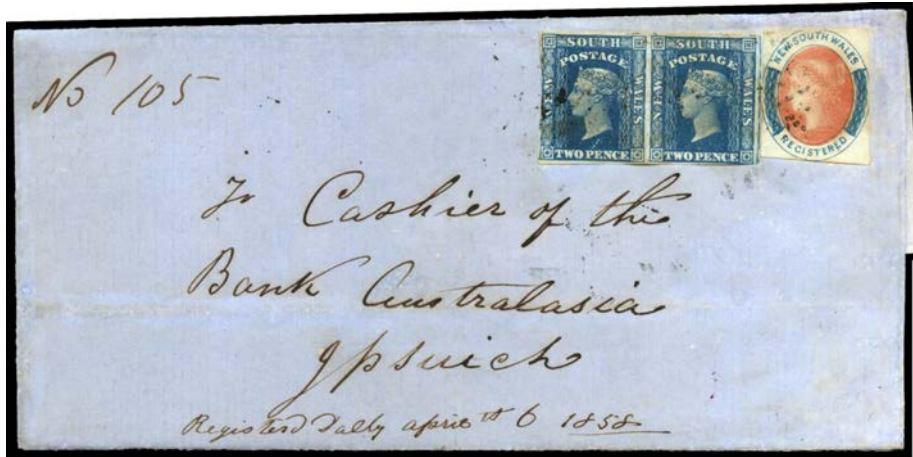 No 105
SOUTH
POSTAGE
NEW
WALES
TWO PENCE
SOUTH
POSTAGE
NEW
WALES
TWO PENCE
NEW SOUTH WALES
REGISTERED
To Cashier of the
Bank Australasia
Ipswich
Registerd Dalby april th 6 1858